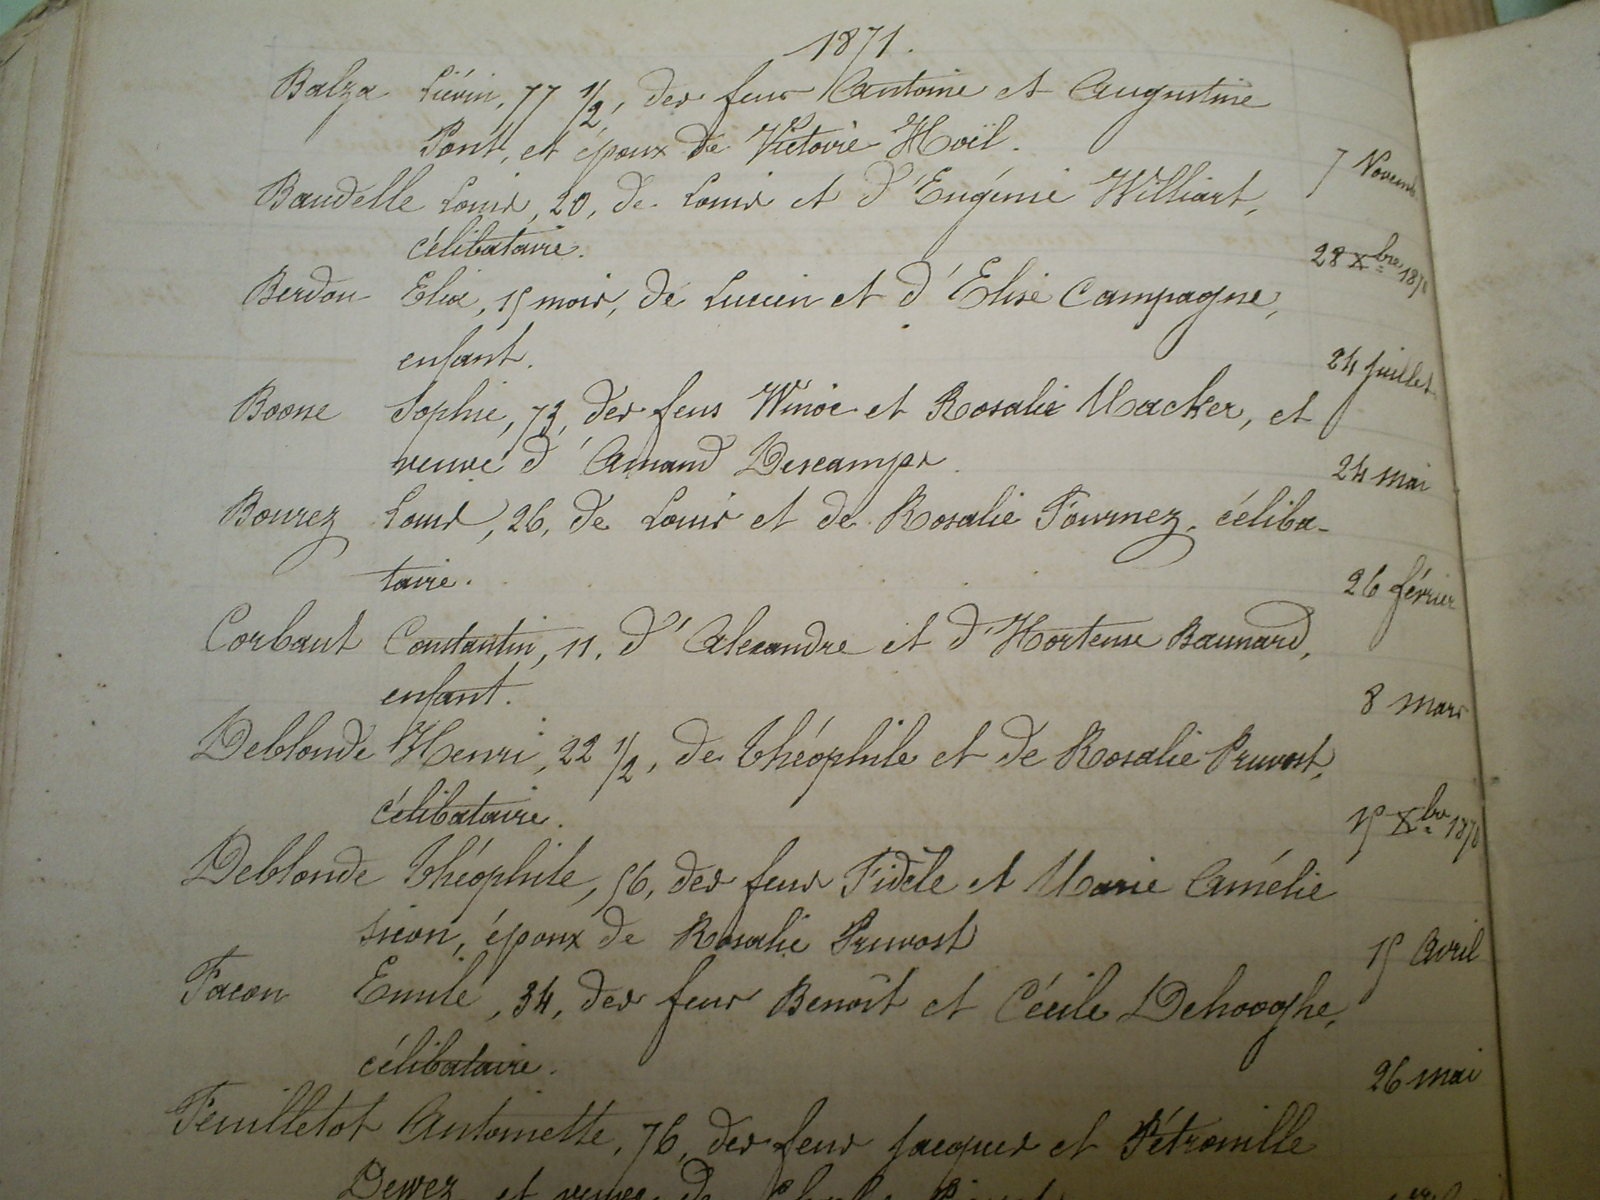 1871.
Balza Liévin, 77 1/2, des feus Antoine et Augustine
Pont, et époux de Victoire Hoël. 7 Novemb
Baudelle Louis, 20, de Louis et d'Eugénie Williart,
célibataire. 28 Xbre 1870
Berdou Elia, 15 mois, de Lucien et d'Elise Campagne,
enfant. 24 juillet
Boone Sophie, 73, des feus Winoc et Rosalie Macker, et
veuve d'Amand Descamps. 24 mai
Bourez Louis, 26, de Louis et de Rosalie Fournez, céliba-
taire. 26 février
Corbaut Constantin, 11, d'Alexandre et d'Hortense Baunard,
enfant. 8 mars
Deblonde Henri, 22 1/2, de Théophile et de Rosalie Pruvost,
célibataire. 15 Xbre 1870
Deblonde Théophile, 56, des feus Fidèle et Marie Amélie
Sicon, époux de Rosalie Pruvost 15 Avril
Facon Emile, 34, des feus Benoît et Cécile Dehooghe,
célibataire. 26 mai
Feuilletot Antoinette, 76, des feus Jacques et Pétronille
Dewez et veuve de